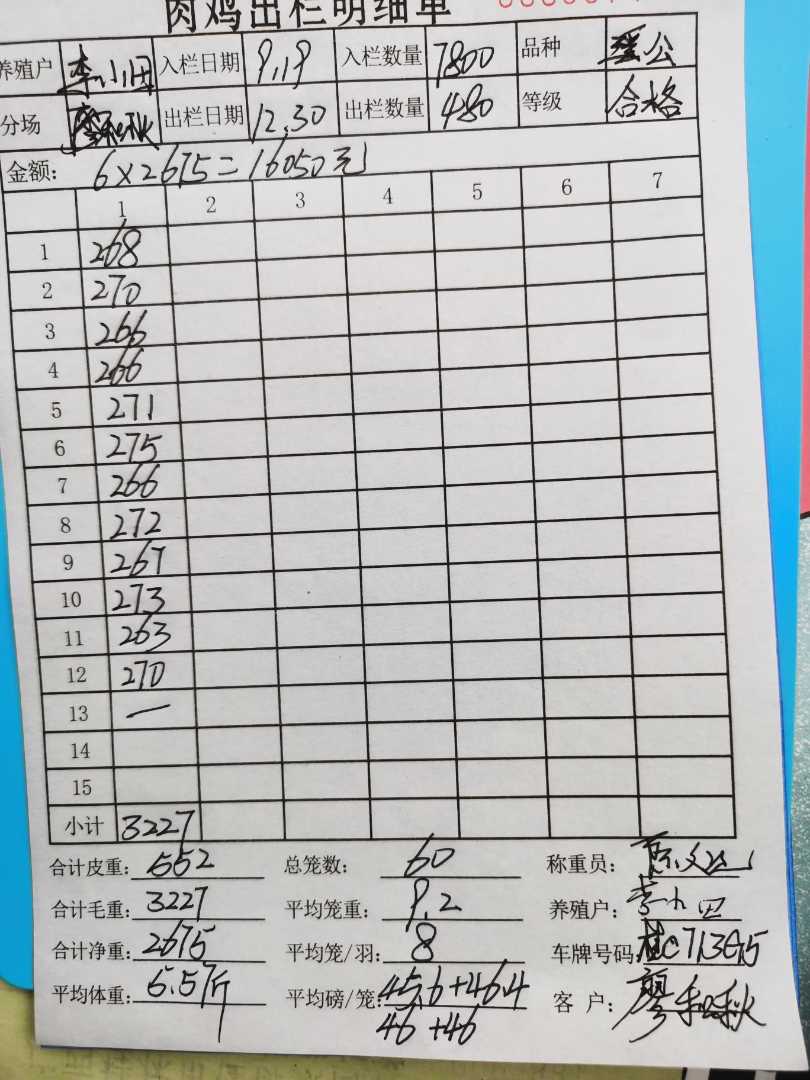 肉鸡出栏明细单
养殖户 李小田 入栏日期 9.19 入栏数量 7800 品种 公
分场 廖和秋 出栏日期 12.30 出栏数量 480 等级 合格
金额: 6×2675=16050元
1 2 3 4 5 6 7
1 268
2 270
3 266
4 266
5 271
6 275
7 266
8 272
9 267
10 273
11 263
12 270
13 —
14
15
小计 3227
合计皮重: 552 总笼数: 60 称重员:
合计毛重: 3227 平均笼重: 9.2 养殖户: 李小田
合计净重: 2675 平均笼/羽: 8 车牌号码: 桂C713G5
平均体重: 5.57斤 平均磅/笼: 45.6+46.4 客户: 廖和秋
46+46